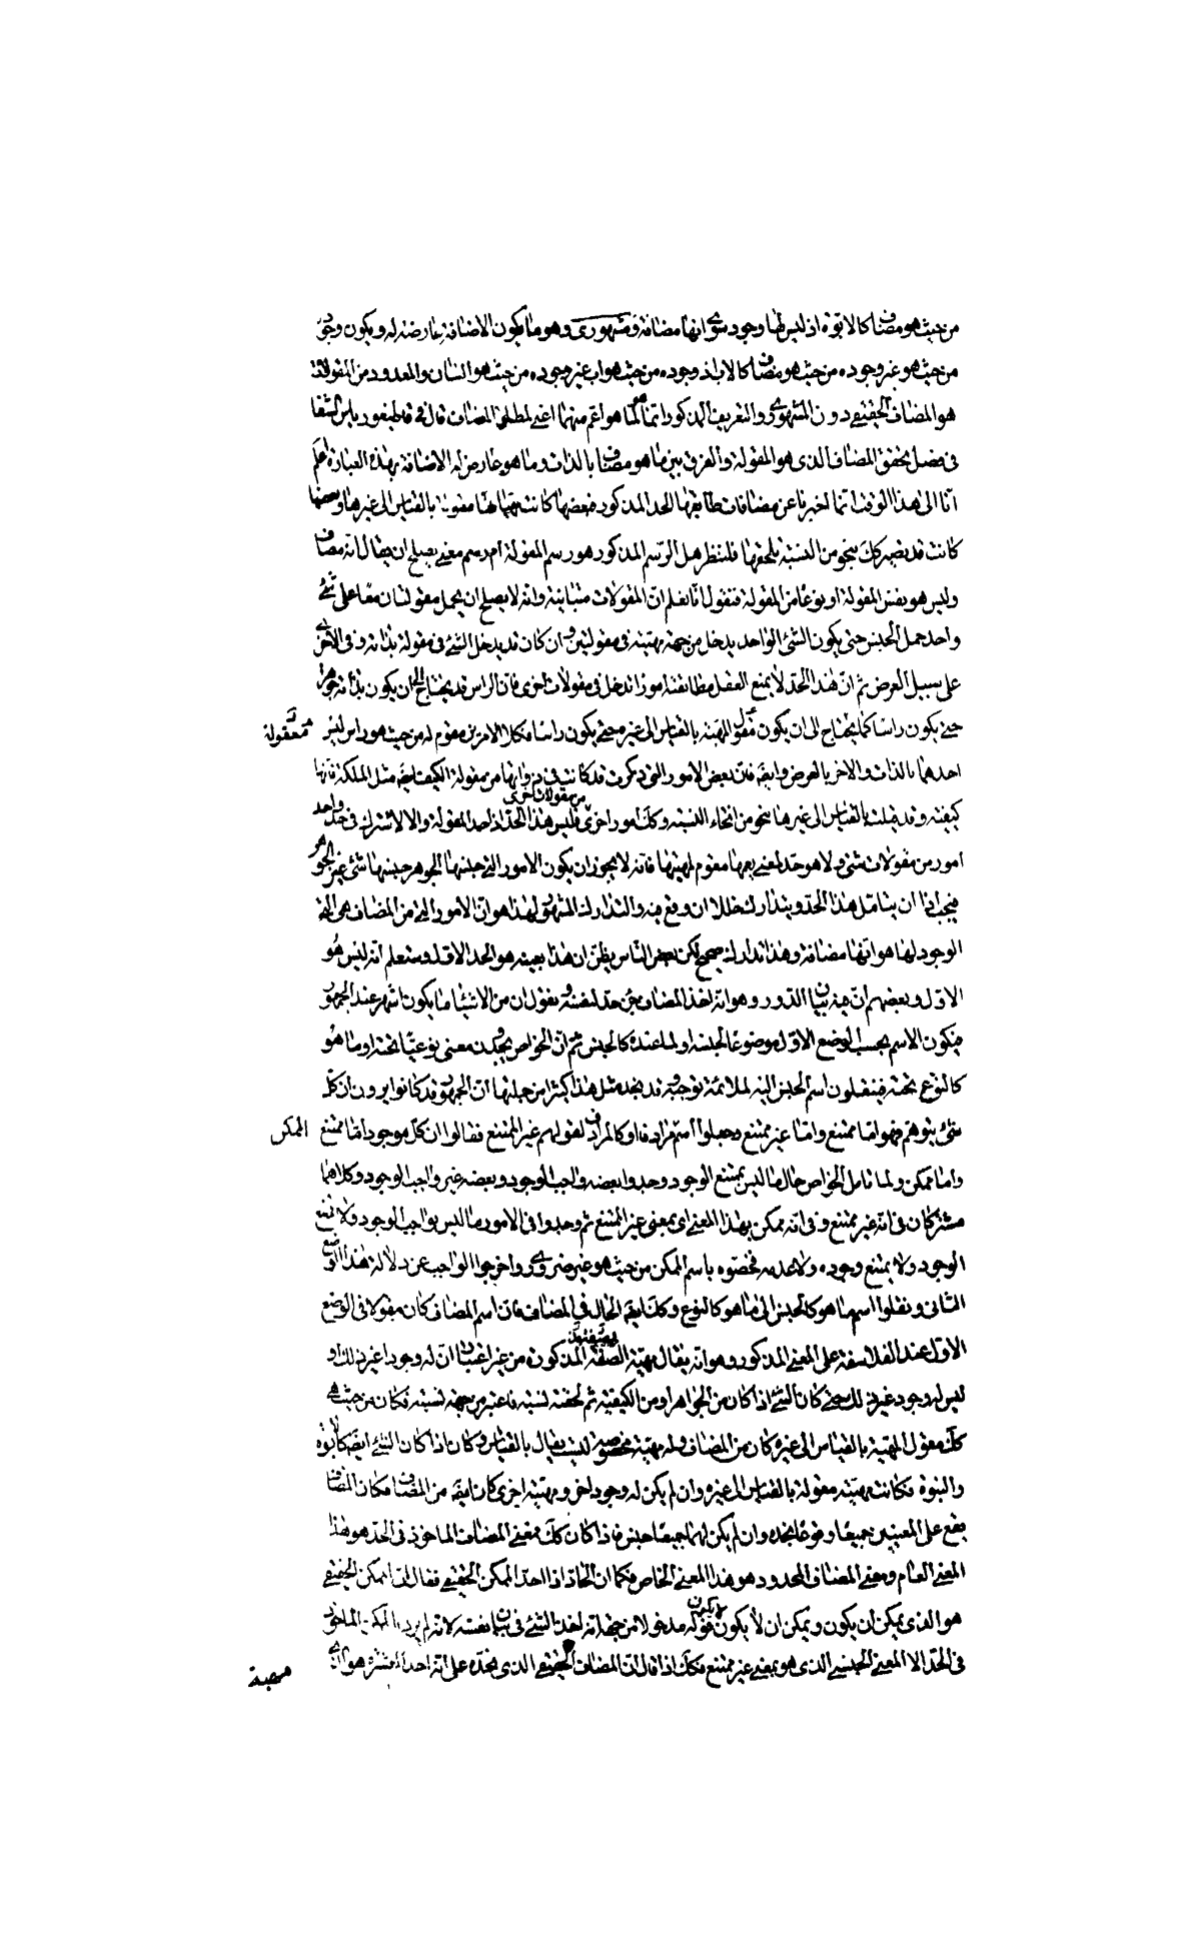 من حيث هو مضاف كالابوة اذ ليس لها وجود سوى انها مضافة ومشهوري وهو ما يكون الاضافة عارضة له ويكون وجوده
من حيث هو غير وجوده من حيث هو مضاف كالاب اذ وجوده من حيث هو اب غير وجوده من حيث هو انسان والمعدود من المقولة
هو المضاف الحقيقي دون المشهوري والتعريف المذكور انما هو لما هو اعم منهما اعني لمطلق المضاف قال في قاطيغورياس الشفا
في فصل تحقق المضاف الذي هو المقولة والفرق بين ما هو مضاف بالذات وما هو عارض له الاضافة بهذه العبارة اعلم
انا الى هذا الوقت انما اخبرنا عن مضافات طابقها الحد المذكور فبعضها كانت مهيتها مقولة بالقياس الى غيرها وبعضها
كانت قد تصير كك بنحو من النسبة يلحقها فلننظر هل الرسم المذكور هو رسم المقولة ام رسم معنى يصلح ان يقال انه مضاف
وليس هو نفس المقولة او نوعا من المقولة فنقول انا نعلم ان المقولات متباينة وانه لا يصلح ان يحمل مقولتان معا على شئ
واحد حمل الجنس حتى يكون الشئ الواحد يدخل من جهة مهيته في مقولتين وان كان قد يدخل الشئ في مقولة بذاته وفي الاخرى
على سبيل العرض ثم ان هذا الحد لا يمنع العقل مطابقته امورا تدخل في مقولات اخرى فان الراس قد يحتاج الى ان يكون بذاته جوهرا
حتى يكون راسا كما يحتاج الى ان يكون مقول المهية بالقياس الى غيره حتى يكون راسا فكلا الامرين مقوم له من حيث هو راس ليس
معقولة
احدهما بالذات والاخر بالعرض وايضا فان بعض الامور التي ذكرت قد كانت في ذواتها من مقولة الكيف ايضا مثل الملكة فانها
كيفية وقد قيلت بالقياس الى غيرها بنحو من انحاء النسبة وكك امور اخرى من مقولات اخرى فليس هذا الحد اذا حد المقولة والا لاشترك في حد واحد
امور من مقولات شتى ولا هو حد لمعنى يعمها مقوم لمهيتها فانه لا يجوز ان يكون الامور التي جنسها الجوهر جنسها شئ غير الجوهر
فيجب اذا ان يتامل هذا الحد ويتدارك خللا ان وقع فيه والتدارك المشهور لهذا هو ان الامور التي من المضاف هي التي
الوجود لها هو انها مضافة وهذا تدارك صحيح لكن بعض الناس يظن ان هذا بعينه هو الحد الاول وستعلم انه ليس هو
الاول وبعضهم ان فيه بيان الدور وهو انه اخذ المضاف في حد نفسه ونقول ان من الاشياء ما يكون اشهر عند الجمهور
فيكون الاسم بحسب الوضع الاول موضوعا لجنسه او لما عنده كالجنس ثم ان الخواص يجدون معنى نوعيا تحته او ما هو
كالنوع تحته فينقلون اسم الجنس اليه لملائمة توجبه قد نجد مثل هذا كثيرا من جملتها ان الجمهور قد كانوا يرون ان كل
شئ يتوهم فهو اما ممتنع واما غير ممتنع وجعلوا اسم مرادفا او كالمرادف لقولهم غير الممتنع فقالوا ان كل موجود اما ممتنع
الممكن
واما ممكن ولما تامل الخواص حال ما ليس بممتنع الوجود وجدوا بعضه واجب الوجود وبعضه غير واجب الوجود وكلاهما
مشتركان في انه غير ممتنع وفي انه ممكن بهذا المعنى اي بمعنى غير الممتنع ثم وجدوا في الامور ما ليس بواجب الوجود ولا ممتنع
الوجود ولا يمتنع وجوده ولا عدمه فخصوه باسم الممكن من حيث هو غير ضروري واخرجوا الواجب عن دلالة هذا الوضع
الثاني ونقلوا اسم ما هو كالجنس الى ما هو كالنوع وكك ايضا الحال في المضاف فان اسم المضاف كان مقولا في الوضع
الاول عند الفلاسفة على المعنى المذكور وهو انه يقال مهيته بالصفة المذكورة من غير اعتبار ان له وجودا غير ذلك او
ليس له وجود غير ذلك حتى كان الشئ اذا كان من الجواهر او من الكيفية ثم لحقته نسبة فاعتبر من جهة نسبته فكان من حيث هي
كك مقول المهية بالقياس الى غيره كان من المضاف وله مهية مخصوصة ليست يقال بالقياس وكان اذا كان الشئ ايضا كالابوة
والبنوة فكانت مهيته مقولة بالقياس الى غيره وان لم يكن له وجود اخر ومهية اخرى كان ايضا من المضاف فكان المضاف
يقع على المعنيين جميعا وقوعا بحده وان لم يكن لهما جميعا جنس فاذا كان كك فمعنى المضاف الماخوذ في الحد هو هذا
المعنى العام ومعنى المضاف المحدود هو هذا المعنى الخاص فكما ان الحاد اذا حد الممكن الحقيقي فقال ان الممكن الحقيقي
هو الذي يمكن ان يكون ويمكن ان لا يكون لا يكون قوله مدخولا من جهة انه اخذ الشئ في بيان نفسه لانه لم يرد بالممكن الماخوذ
في الحد الا المعنى الجنسي الذي هو بمعنى غير ممتنع فكك اذا قال ان المضاف الحقيقي الذي نحده على انه احد العشرة هو الذي
مهيته